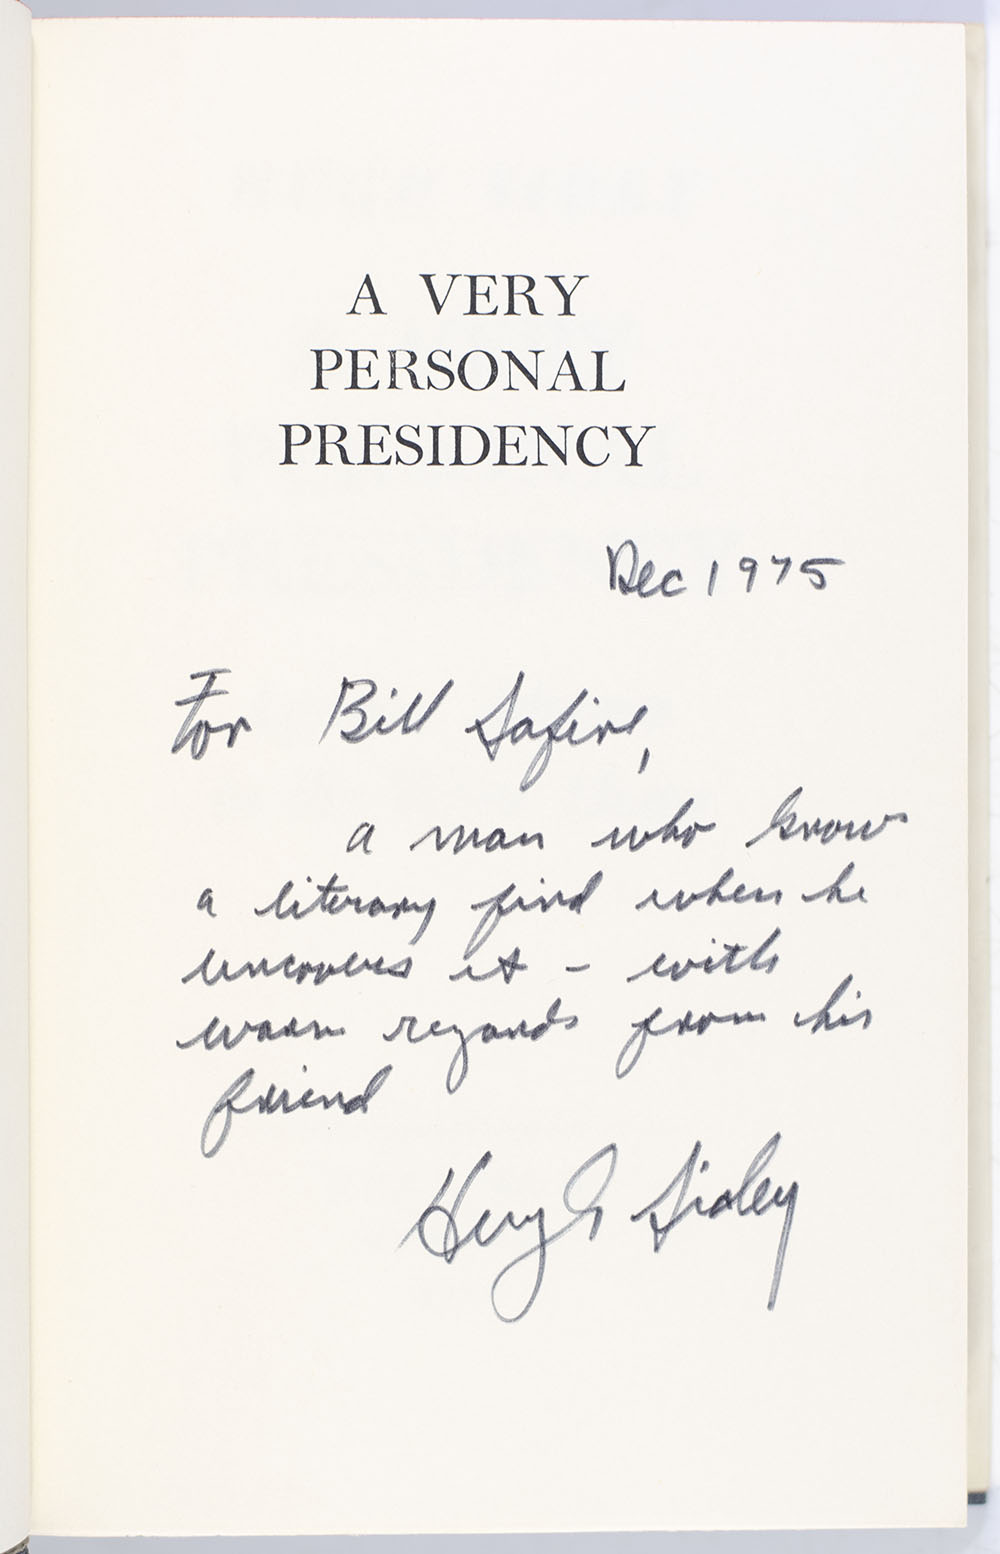 A VERY
PERSONAL
PRESIDENCY
Dec 1975
For Bill Safire,
a man who knows
a literary find when he
uncovers it - with
warm regards from his
friend
Hugh Sidey